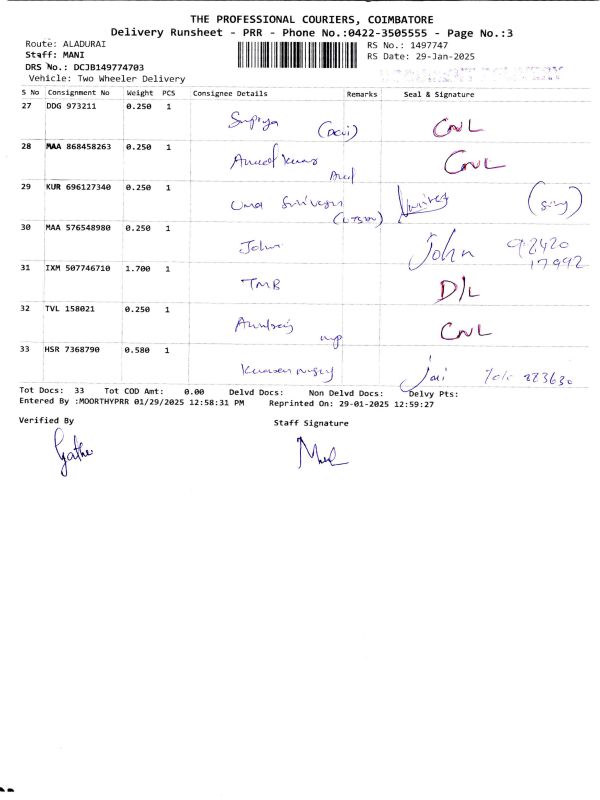 THE PROFESSIONAL COURIERS, COIMBATORE
Delivery Runsheet - PRR - Phone No.:0422-3505555 - Page No.:3
Route: ALADURAI
RS No.: 1497747
Staff: MANI
RS Date: 29-Jan-2025
DRS No.: DCJB149774703
Vehicle: Two Wheeler Delivery
S No Consignment No Weight PCS Consignee Details Remarks Seal & Signature
27 DDG 973211 0.250 1
Supriya CNL
28 MAA 868458263 0.250 1
CNL
29 KUR 696127340 0.250 1
Uma
30 MAA 576548980 0.250 1
John John 92420
17992
31 IXM 507746710 1.700 1
TMB D/L
32 TVL 158021 0.250 1
CNL
33 HSR 7368790 0.580 1
283630
Tot Docs: 33 Tot COD Amt: 0.00 Delvd Docs: Non Delvd Docs: Delvy Pts:
Entered By :MOORTHYPRR 01/29/2025 12:58:31 PM Reprinted On: 29-01-2025 12:59:27
Verified By
Staff Signature